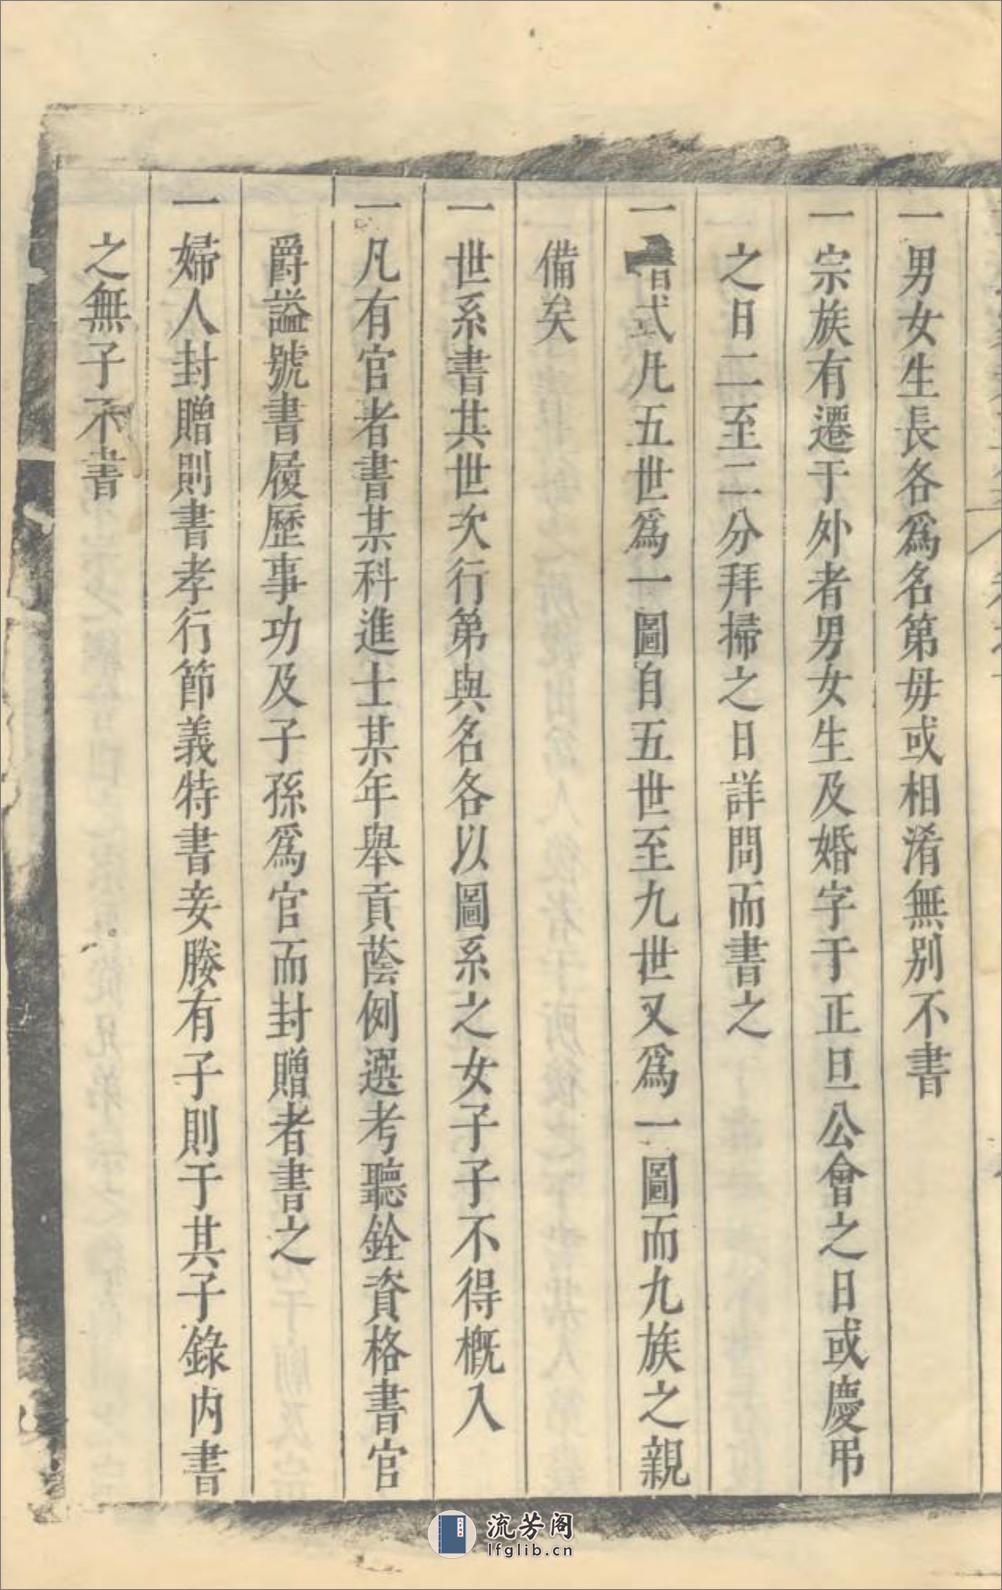 一男女生長各爲名第毋或相淆無別不書
一宗族有遷于外者男女生及婚字于正旦公會之日或慶弔
之日二至二分拜掃之日詳問而書之
一式凡五世爲一圖自五世至九世又爲一圖而九族之親
備矣
一世系書其世次行第與名各以圖系之女子子不得概入
一凡有官者書某科進士某年舉貢蔭例選考聽銓資格書官
爵謚號書履歷事功及子孫爲官而封贈者書之
一婦人封贈則書孝行節義特書妾媵有子則于其子錄内書
之無子不書
流芳阁
lfglib.cn